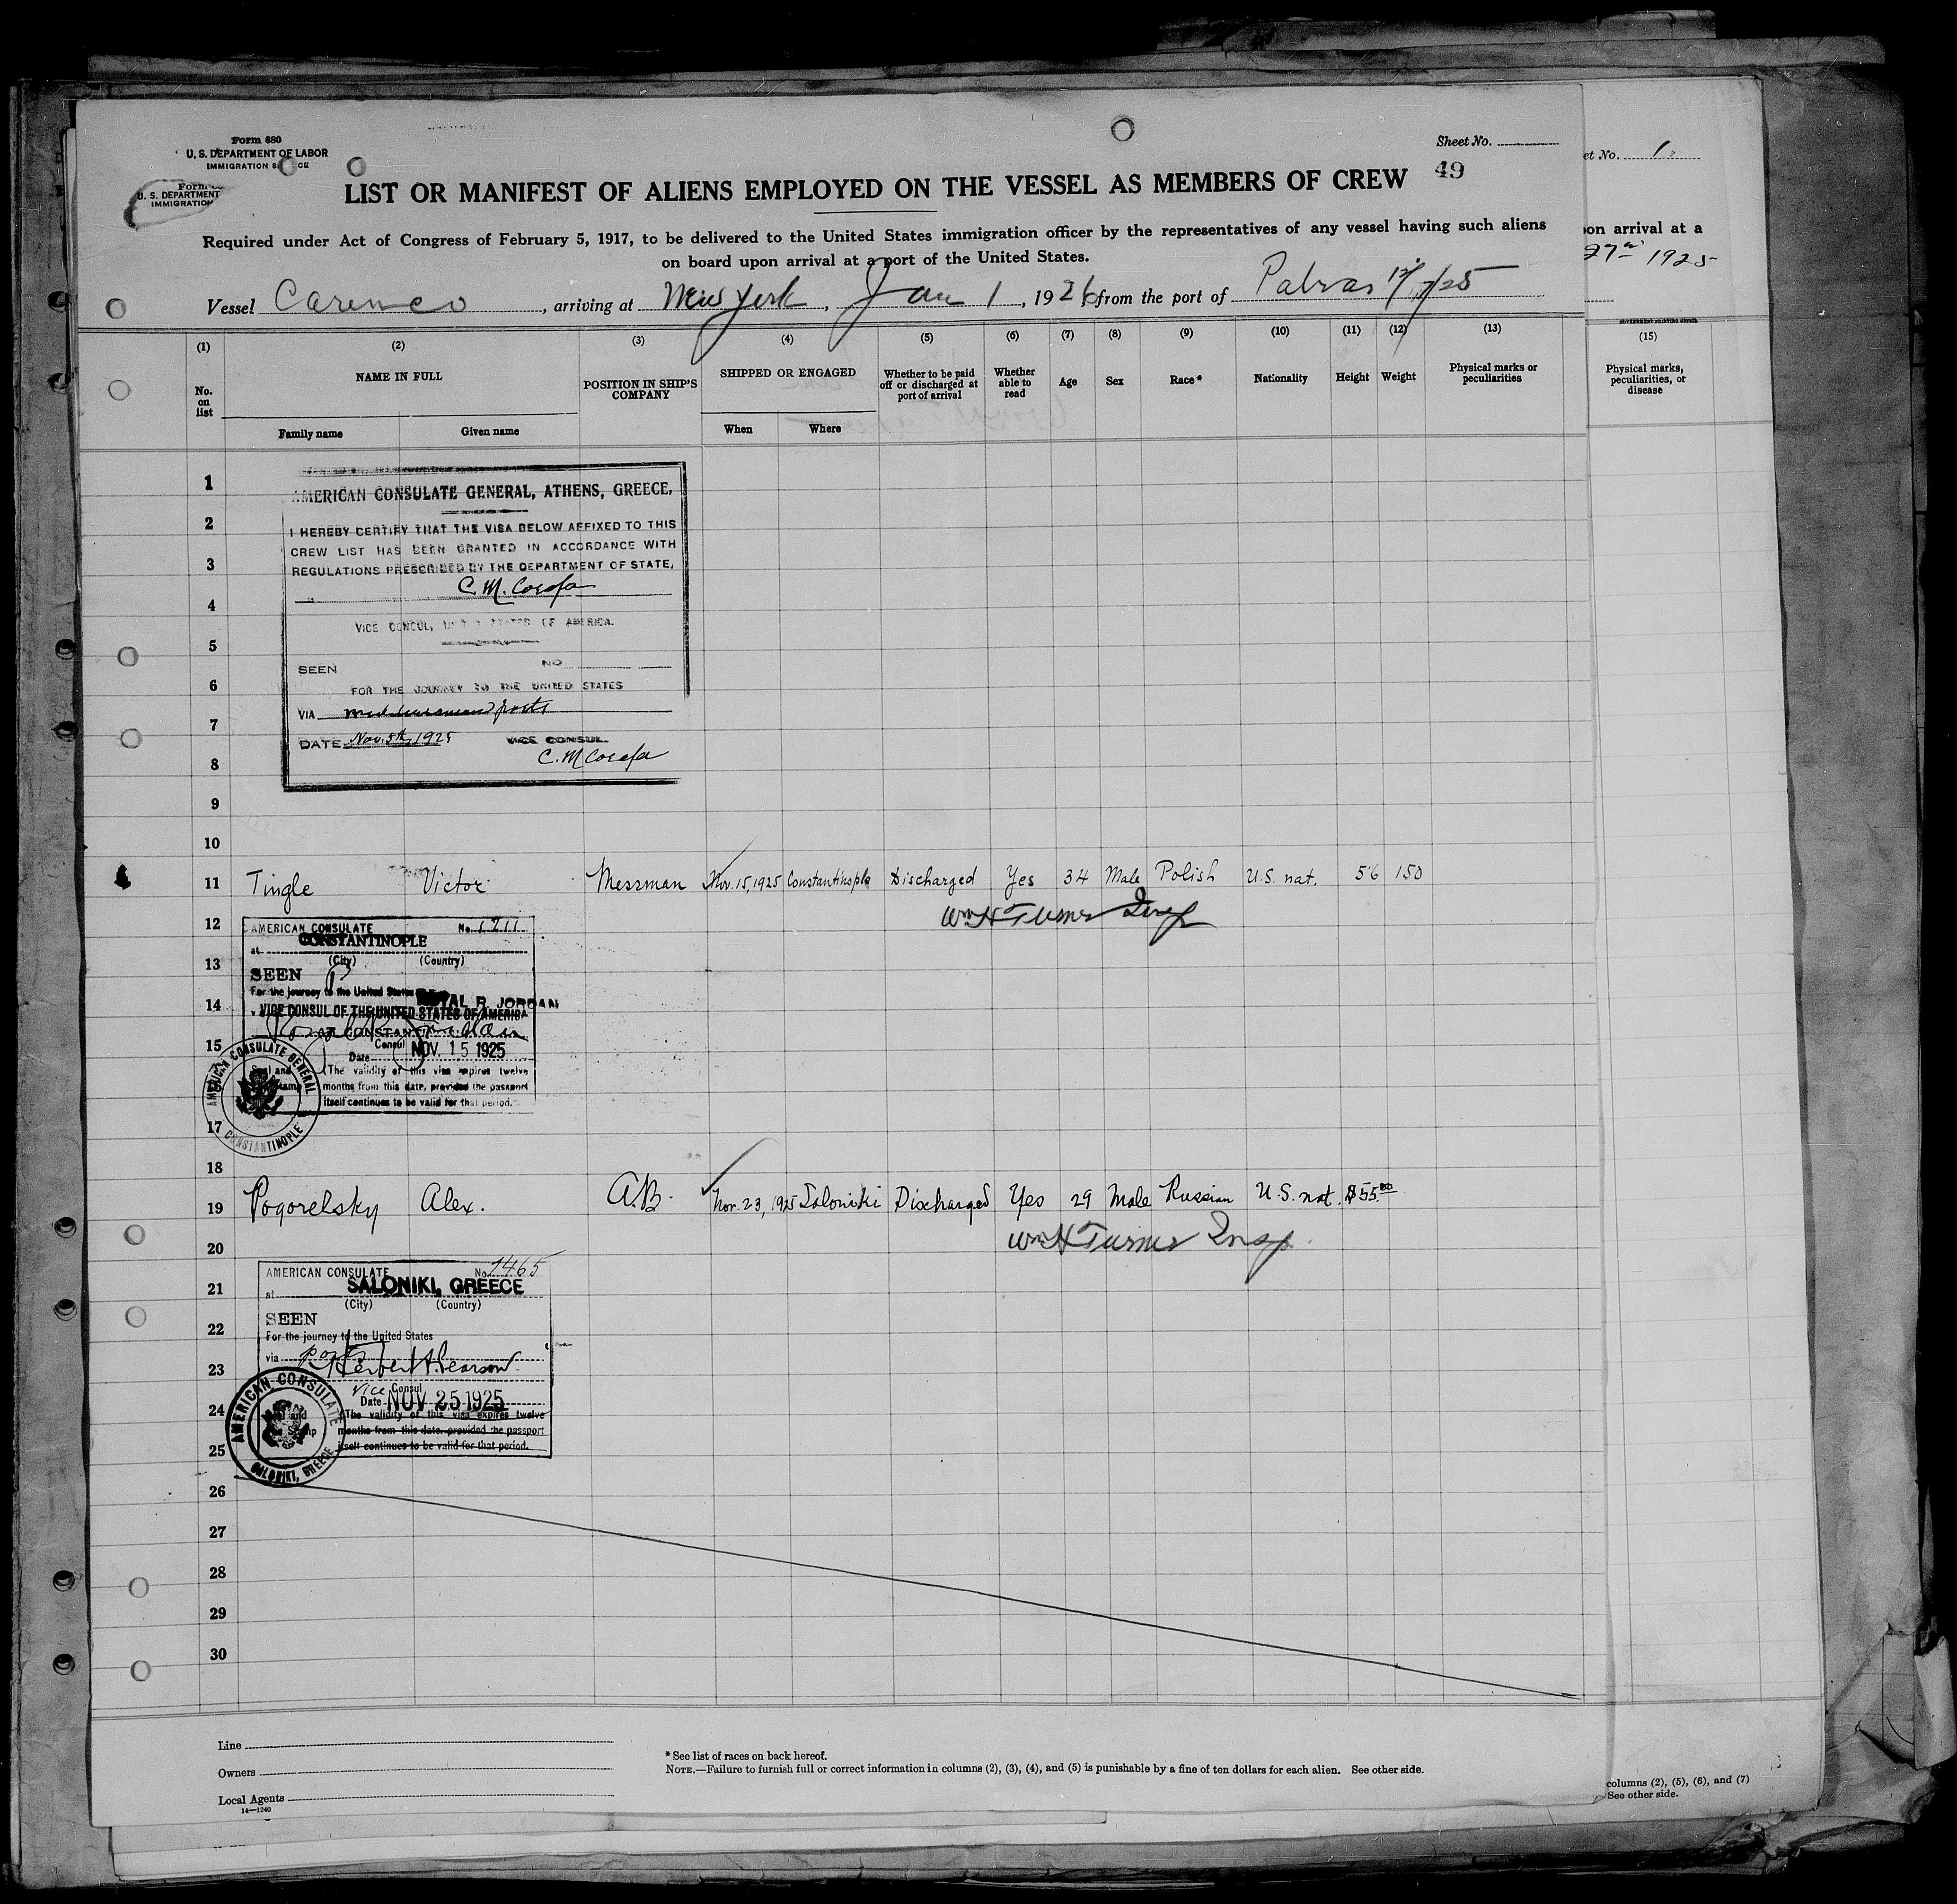 Form 680
U. S. DEPARTMENT OF LABOR
IMMIGRATION
Form
U. S. DEPARTMENT
IMMIGRATION
Sheet No.
49
et No. 1
LIST OR MANIFEST OF ALIENS EMPLOYED ON THE VESSEL AS MEMBERS OF CREW
Required under Act of Congress of February 5, 1917, to be delivered to the United States immigration officer by the representatives of any vessel having such aliens
on board upon arrival at a port of the United States.
pon arrival at a
27th 1925
Vessel Carenco, arriving at New York, Jan 1, 1926 from the port of Patras 12/7/25
GOVERNMENT PRINTING OFFICE
(1) (2) (3) (4) (5) (6) (7) (8) (9) (10) (11) (12) (13) (15)
No. on list
NAME IN FULL
Family name Given name
POSITION IN SHIP'S COMPANY
SHIPPED OR ENGAGED
When Where
Whether to be paid off or discharged at port of arrival
Whether able to read
Age
Sex
Race *
Nationality
Height
Weight
Physical marks or peculiarities
Physical marks, peculiarities, or disease
1
AMERICAN CONSULATE GENERAL, ATHENS, GREECE,
2
I HEREBY CERTIFY THAT THE VISA BELOW AFFIXED TO THIS
CREW LIST HAS BEEN GRANTED IN ACCORDANCE WITH
3
REGULATIONS PRESCRIBED BY THE DEPARTMENT OF STATE,
4
VICE CONSUL, UNITED STATES OF AMERICA.
5
SEEN NO
6
FOR THE JOURNEY TO THE UNITED STATES
VIA Mediterranean ports
7
DATE Nov. 5th, 1925 VICE CONSUL.
8
9
10
11 Tingle Victor Messman Nov. 15, 1925 Constantinople Discharged Yes 34 Male Polish U.S. nat. 5'6 150
Wm H Turner Insp
12
AMERICAN CONSULATE No. 1211
at CONSTANTINOPLE
(City) (Country)
13
SEEN
For the journey to the United States
14
ROYAL R. JORDAN
VICE CONSUL OF THE UNITED STATES OF AMERICA
AT CONSTANTINOPLE
15
Consul
Date NOV. 15 1925
The validity of this visa expires twelve
16
months from this date, provided the passport
itself continues to be valid for that period.
AMERICAN CONSULATE GENERAL
CONSTANTINOPLE
17
18
19 Pogorelsky Alex. A.B. Nov. 23, 1925 Saloniki Discharged Yes 29 Male Russian U.S. nat. $55.00
Wm H Turner Insp.
20
AMERICAN CONSULATE No. 1465
21
at SALONIKI, GREECE
(City) (Country)
SEEN
22
For the journey to the United States
via ports
23
Herbert A. Pearson
Vice Consul
Date NOV 25 1925
24
The validity of this visa expires twelve
months from this date, provided the passport
25
itself continues to be valid for that period.
AMERICAN CONSULATE
SALONIKI, GREECE
26
27
28
29
30
Line
Owners
Local Agents
14—1240
* See list of races on back hereof.
NOTE.—Failure to furnish full or correct information in columns (2), (3), (4), and (5) is punishable by a fine of ten dollars for each alien. See other side.
columns (2), (5), (6), and (7)
See other side.